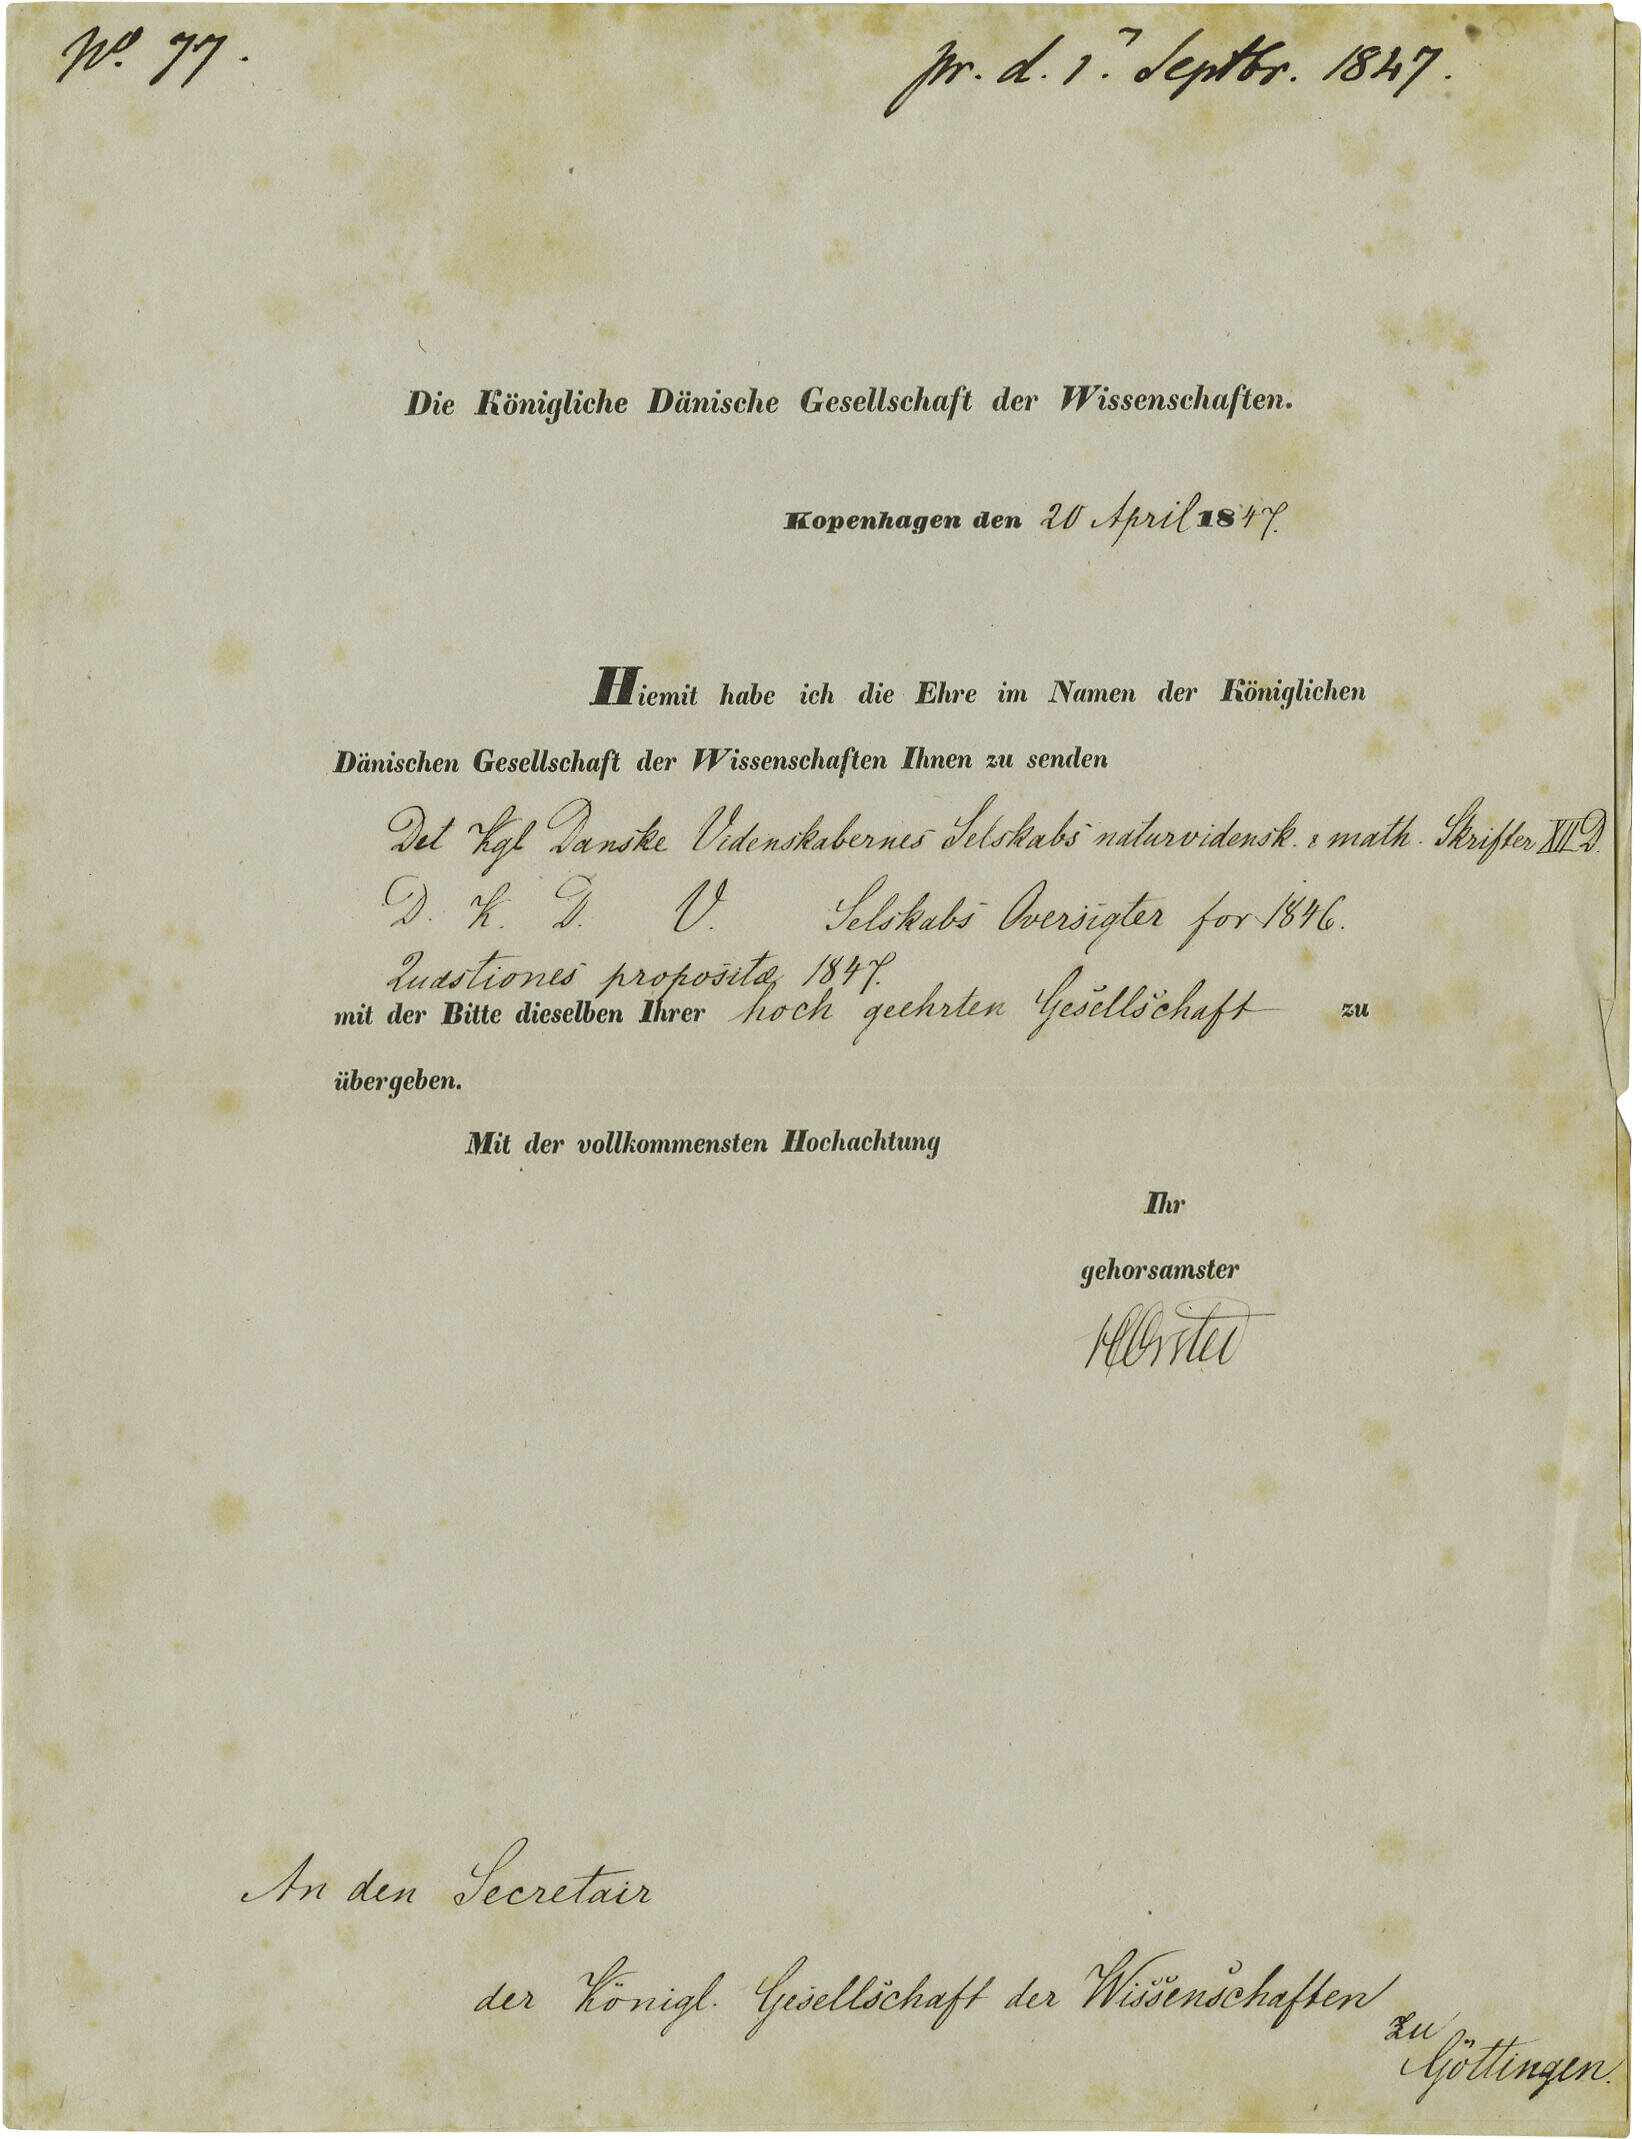 No. 77.
pr. d. 1. Septbr. 1847.
Die Königliche Dänische Gesellschaft der Wissenschaften.
Kopenhagen den 20 April 1847.
Hiemit habe ich die Ehre im Namen der Königlichen
Dänischen Gesellschaft der Wissenschaften Ihnen zu senden
Det Kgl Danske Videnskabernes Selskabs naturvidensk. & math. Skrifter XII D.
D. K. D. V. Selskabs Oversigter for 1846.
Quæstiones propositæ 1847.
mit der Bitte dieselben Ihrer hoch geehrten Gesellschaft zu
übergeben.
Mit der vollkommensten Hochachtung
Ihr
gehorsamster
HCØrsted
An den Secretair
der Königl. Gesellschaft der Wissenschaften
zu
Göttingen.